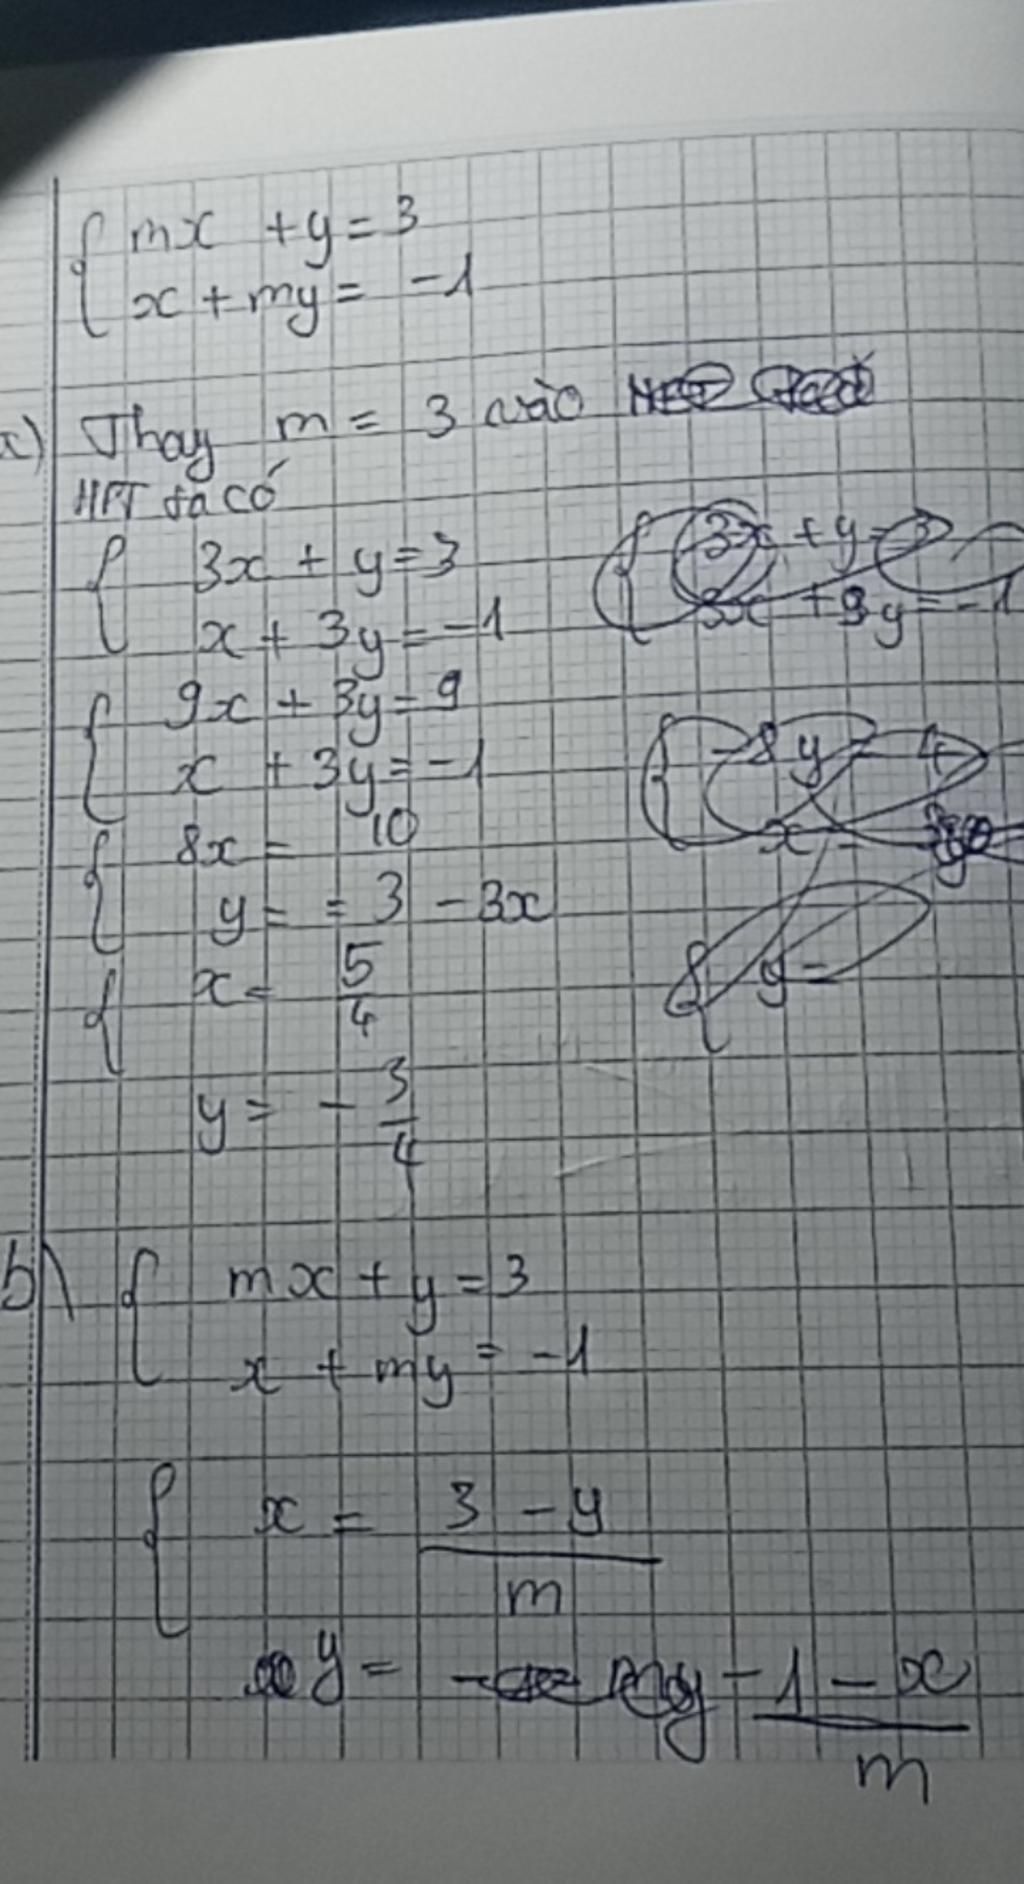 { mx + y = 3
x + my = -1
a) Thay m = 3 vào
HPT ta có
{ 3x + y = 3
x + 3y = -1
{ 9x + 3y = 9
x + 3y = -1
{ 8x = 10
y = = 3 - 3x
{ x = 5/4
y = - 3/4
{ 3x + y = 3
+ 9y = -1
{ -8y = 4
x =
{ y =
b) { mx + y = 3
x + my = -1
{ x = (3 - y)/m
y = (-1 - x)/m